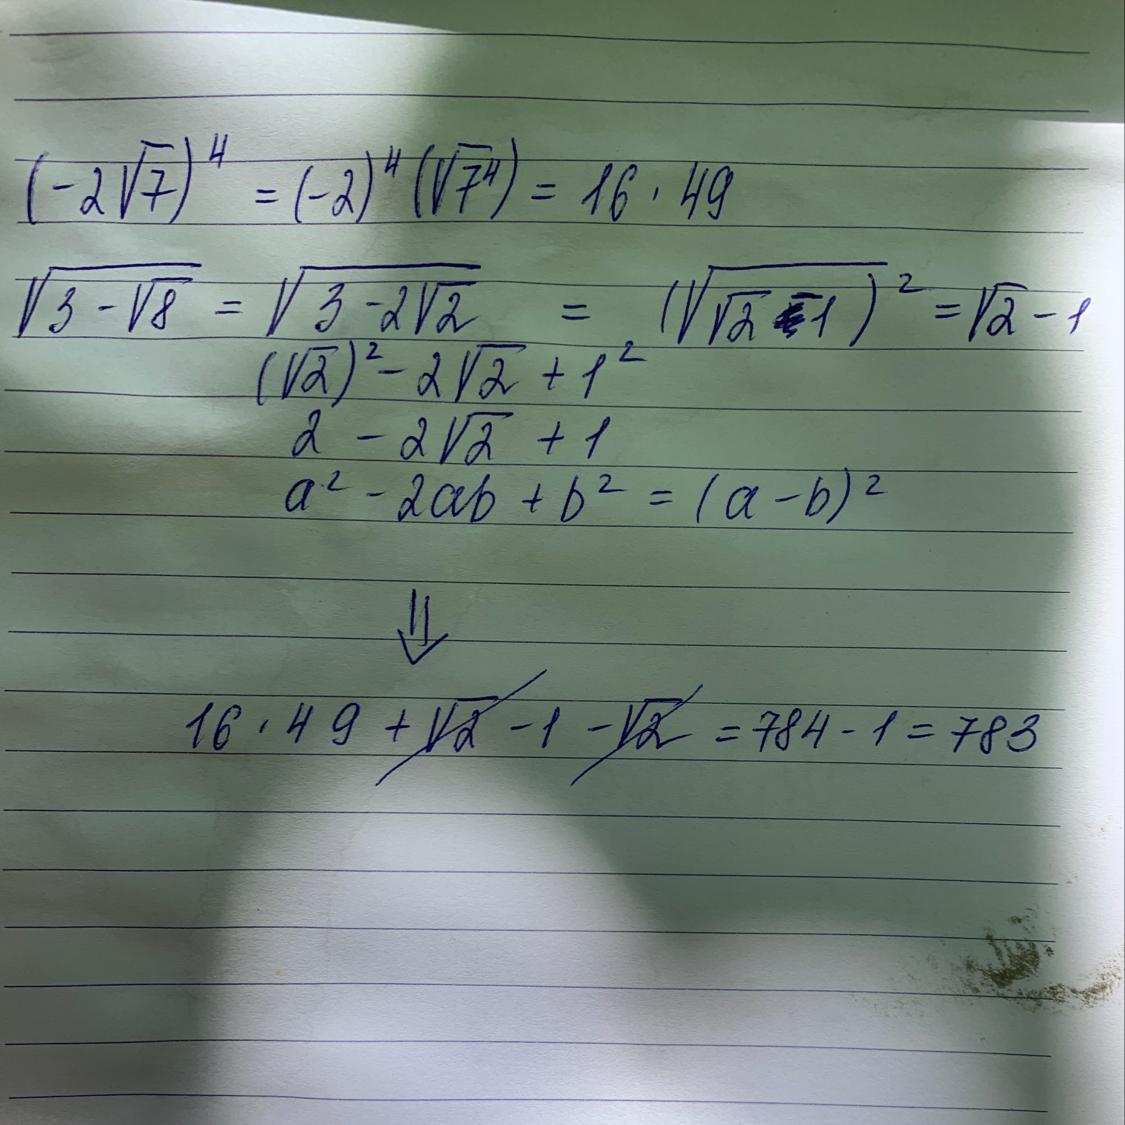 (-2√7)⁴ = (-2)⁴ (√7⁴) = 16 · 49
√(3 - √8) = √(3 - 2√2) = (√(√2 - 1))² = √2 - 1
(√2)² - 2√2 + 1²
2 - 2√2 + 1
a² - 2ab + b² = (a - b)²
⇓
16 · 49 + √2 - 1 - √2 = 784 - 1 = 783